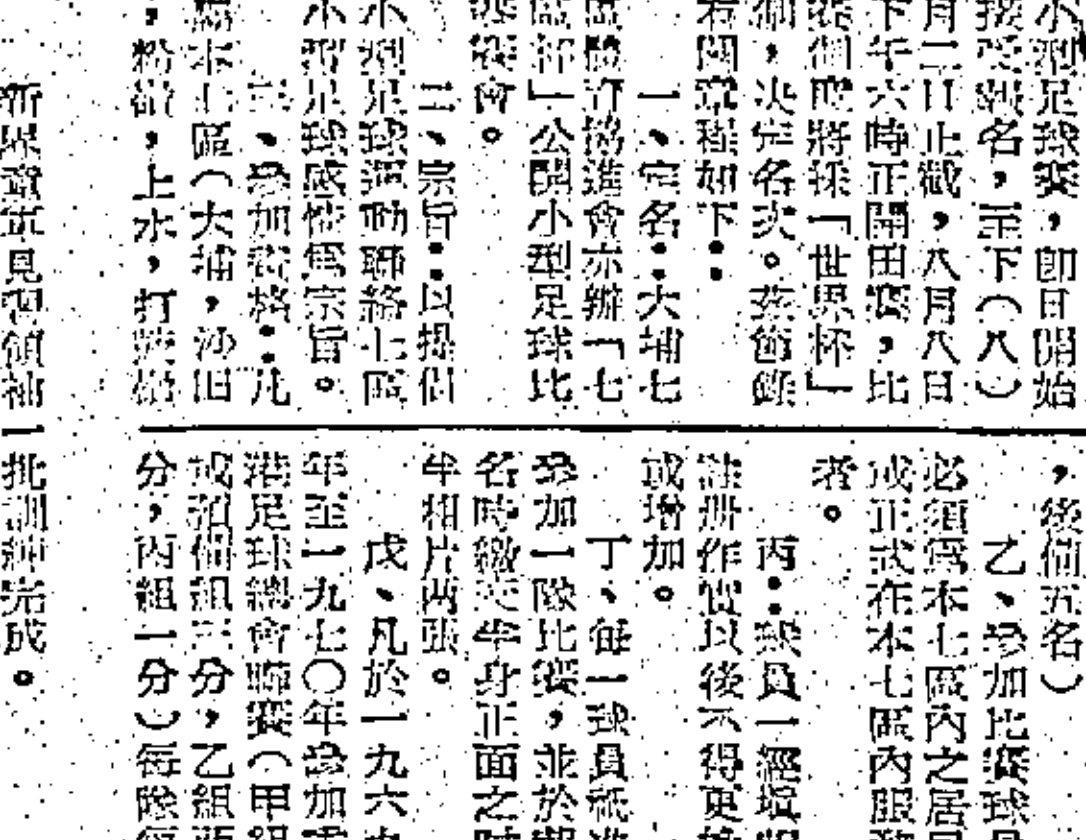 小型足球賽,卽日開始
接受報名,至下(八)
月二日止截,八月八日
下午六時正開田賽,比
賽制度將採「世界杯」
制,决定名次。茲節錄
有關章程如下:
一、定名:大埔七
區體育協進會亦辦「七
區杯」公開小型足球比
賽會。
二、宗旨:以提倡
小型足球運動聯絡七區
小型足球感情爲宗旨。
三、參加資格:凡
屬本七區(大埔,沙田
,粉嶺,上水,打鼓嶺
,後備五名)
乙、參加比賽球員
必須爲本七區內之居
或正式在本七區內服務
者。
丙:球員一經塡報
註册作實以後不得更
或增加。
丁、每一球員祗准
參加一隊比賽,並於報
名時繳交半身正面之
半相片両張。
戊、凡於一九六九
年至一九七〇年參加
港足球總會聯賽(甲組
或預備組三分,乙組
分,丙組一分)每隊每
新界童軍見習領袖一批訓練完成。